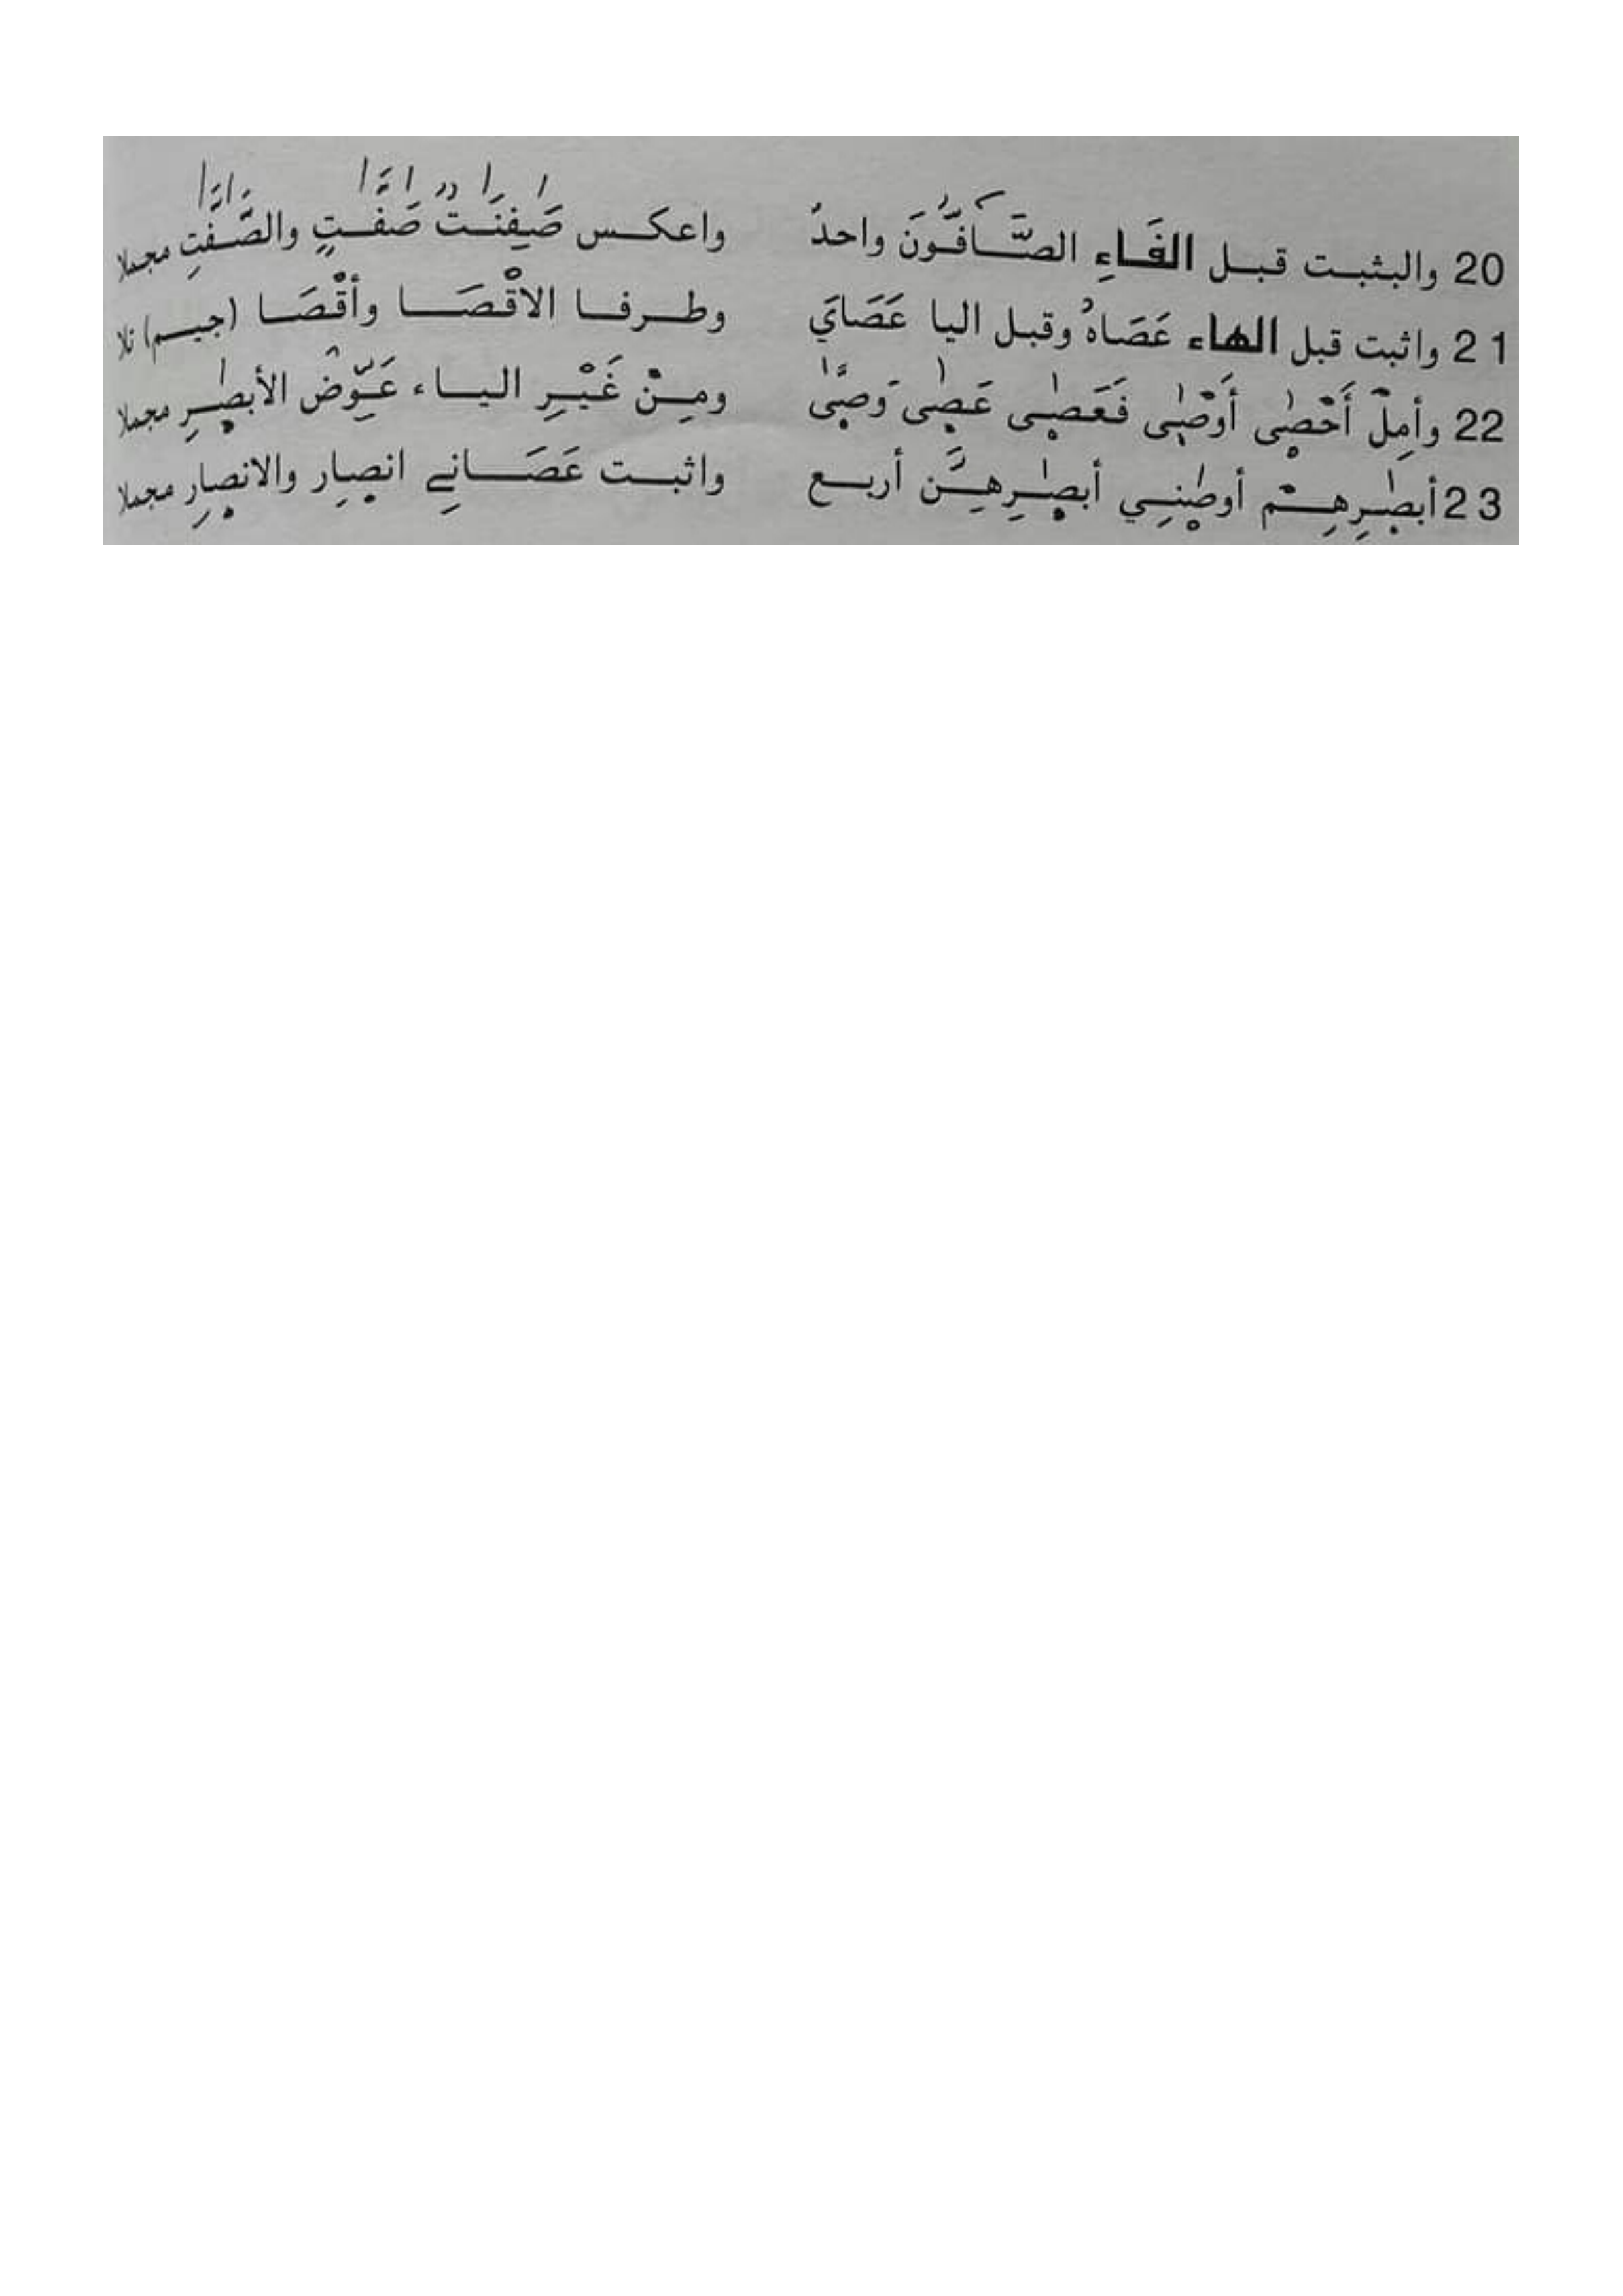 20 والبثبت قبل الفَاءِ الصَّافُّونَ واحدُ واعكس صَٰفِنَٰتٌ صَٰفَّٰتٍ والصَّٰفَّٰتِ مجملا
21 واثبت قبل الهاء عَصَاهُ وقبل اليا عَصَايَ وطرفا الاقْصَا وأقْصَا (جيم) تلا
22 وأمِلْ أَحْصٰى أَوْصٰى فَعَصٰى عَصٰى وَصّٰى ومِنْ غَيْرِ الياء عَوِّضْ الأبصٰرِ مجملا
23 أبصٰرِهِمْ أوصٰنِي أبصٰرِهِنَّ أربع واثبت عَصَانِے انصارِ والانصارِ مجملا